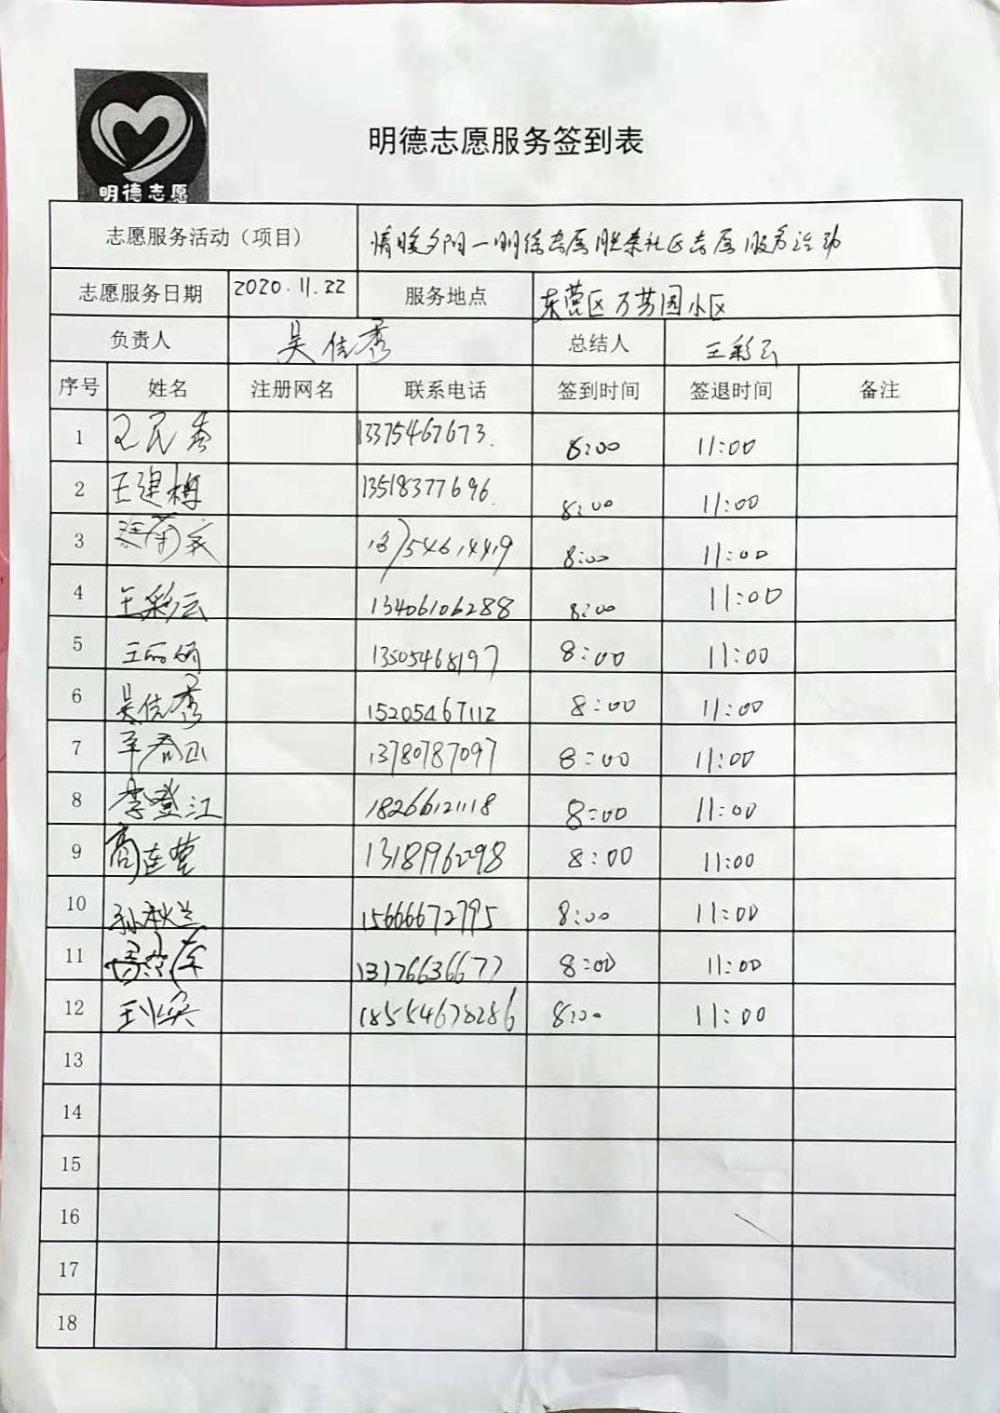 明德志愿
明德志愿服务签到表
志愿服务活动（项目） 情暖夕阳一明德志愿胜泰社区志愿服务活动
志愿服务日期 2020.11.22 服务地点 东营区万芳园小区
负责人 吴佳秀 总结人 王彩云
序号 姓名 注册网名 联系电话 签到时间 签退时间 备注
1 王民秀 13375467673. 8:00 11:00
2 王建梅 13518377696. 8:00 11:00
3 13754614419 8:00 11:00
4 王彩云 13406106288 8:00 11:00
5 王丽娟 13505468197 8:00 11:00
6 吴佳秀 15205467112 8:00 11:00
7 13780787097 8:00 11:00
8 李登江 18266121118 8:00 11:00
9 高连莹 13189962298 8:00 11:00
10 孙秋兰 15666672795 8:00 11:00
11 13176636677 8:00 11:00
12 18554678286 8:00 11:00
13
14
15
16
17
18